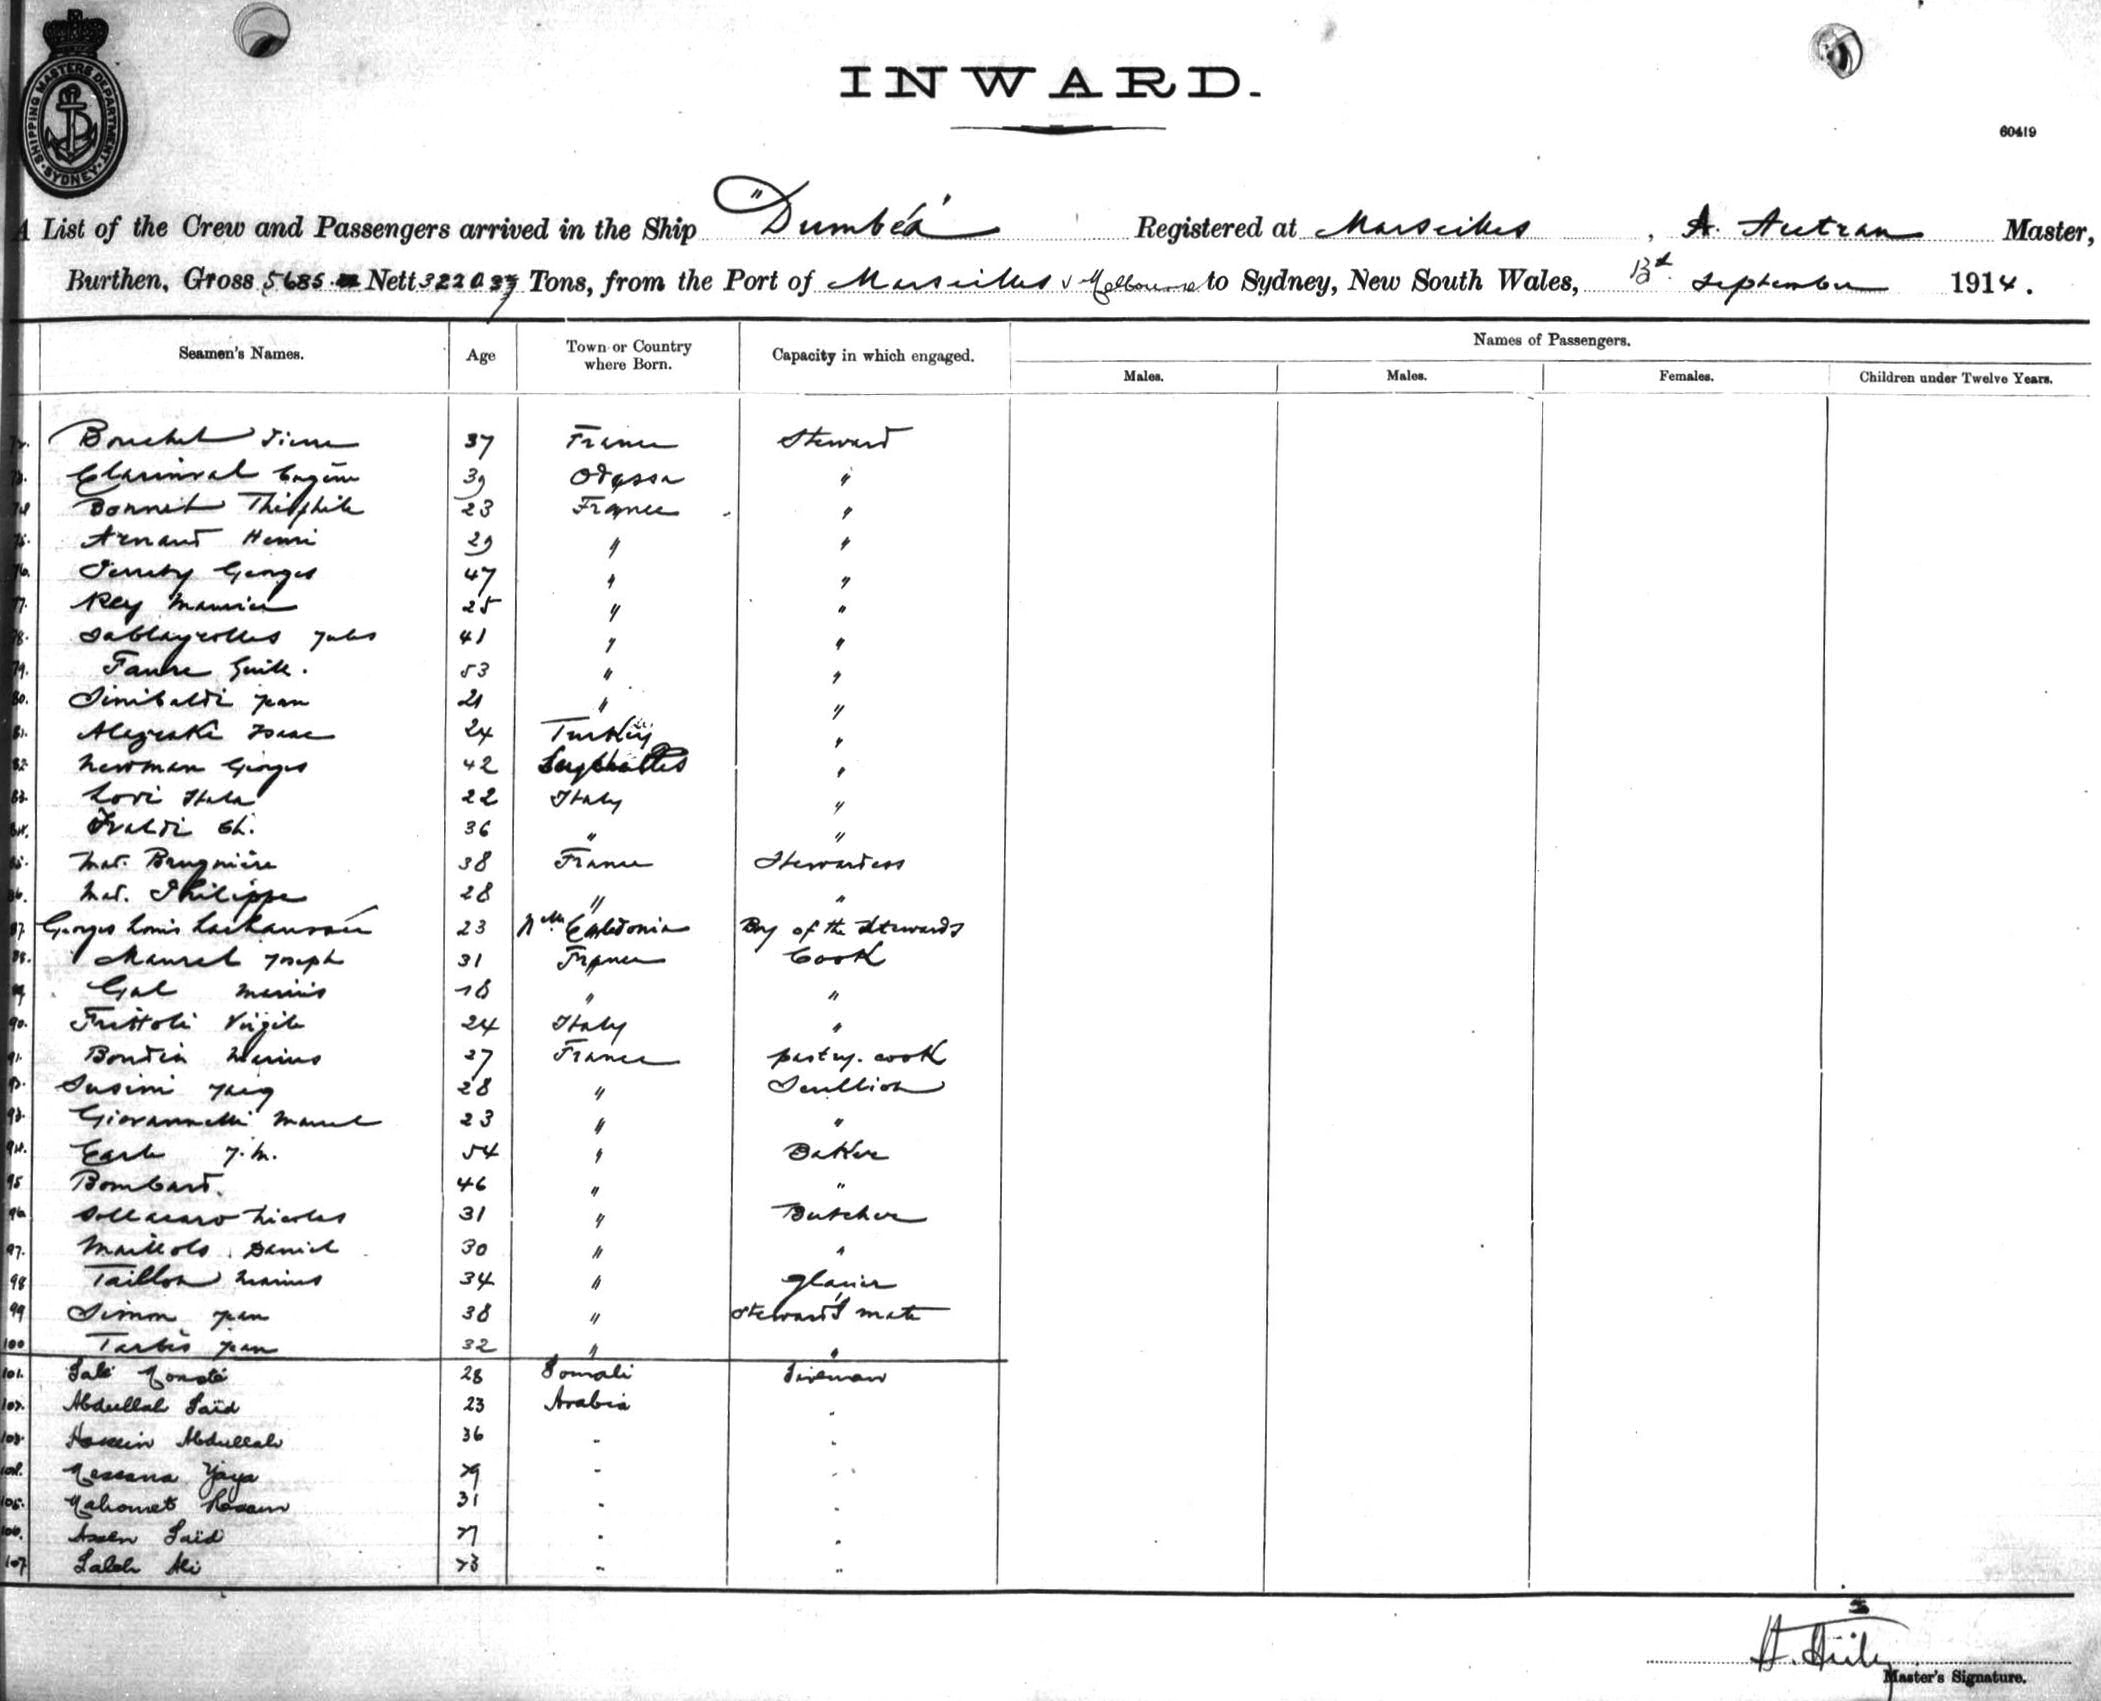 SHIPPING MASTERS DEPARTMENT
SYDNEY
INWARD.
60419
A List of the Crew and Passengers arrived in the Ship "Dumbéa" Registered at Marseilles, A. Autran Master,
Burthen, Gross 5685 Nett 3220 Tons, from the Port of Marseilles & Melbourne to Sydney, New South Wales, September 1914.
Seamen's Names. Age Town or Country where Born. Capacity in which engaged. Names of Passengers.
Males. Males. Females. Children under Twelve Years.
Bouchet 37 France Steward
Clarinval Eugène 39 Odessa "
74 Bonnet Théophile 23 France "
75. Arnaud Henri 29 " "
76. Georges 47 " "
77. Rey Maurice 25 " "
78. Sablayrolles Jules 41 " "
79. Faure 53 " "
80. Sinibaldi Jean 21 " "
81. Isaac 24 Turkey "
82. Newman Georges 42 "
83. 22 Italy "
84. 36 " "
85. Mad. Brugnière 38 France Stewardess
86. Mad. Philippe 28 " "
87. Georges Louis 23 Nlle. Caledonia Boy of the Stewards
88. Maurel Joseph 31 France Cook
89 Gal Marius 18 " "
90. Frittoli Virgile 24 Italy "
91. Boudin Marius 27 France pastry-cook
92. Susini 28 " Scullion
93. Giovannelli Marcel 23 " "
94. J. M. 54 " Baker
95 Bombard. 46 " "
96 Sollacaro Nicolas 31 " Butcher
97. Maillols Daniel 30 " "
98 Taillon Marius 34 " glacier
99 Simon Jean 38 " Steward's mate
100 Jean 32 " "
101. 28 Somali Fireman
102. Abdullah Saïd 23 Arabia "
103. Hossein Abdullah 36 - "
104. Hassana Yaya 29 - "
105. Mahomet Hassan 31 - "
106. Assen Saïd 27 - "
107. Saleh Ali 23 - "
Master's Signature.